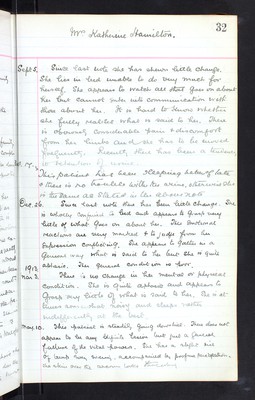 32
Mrs Katherine Hamilton.
Sept 5. Since last note she has shewn little change.
She lies in bed unable to do very much for
herself. She appears to watch all that goes on about
her but cannot enter into communication with
those about her. It is hard to know whether
she fully realises what is said to her. There
is apparent considerable pain & discomfort
from her limbs and she has to be moved
frequently. there has been a
of
This patient has been sleeping better of late
& there is no trouble with her otherwise she
is the same as stated in the above note
Dec. 26. Since last note there has been little change. She
is entirely confined to bed and appears to grasp very
little of what goes on about her. Her emotional
reactions are very marked & to judge from her
expression conflicting. She appears to gather in a
general way what is said to her but she is quite
aphasic. Her general condition is poor.
1913
Mar 2. There is no change in her mental or physical
condition. She is quite aphasic and appears to
grasp very little of what is said to her. She is at
times and sleeps rather
indifferently at the best.
May 10. This patient is steadily going downhill. There does not
appear to be any definite lesion but just a general
failure of the vital powers. She has a slight rise
of temp every evening, accompanied by profuse perspiration.